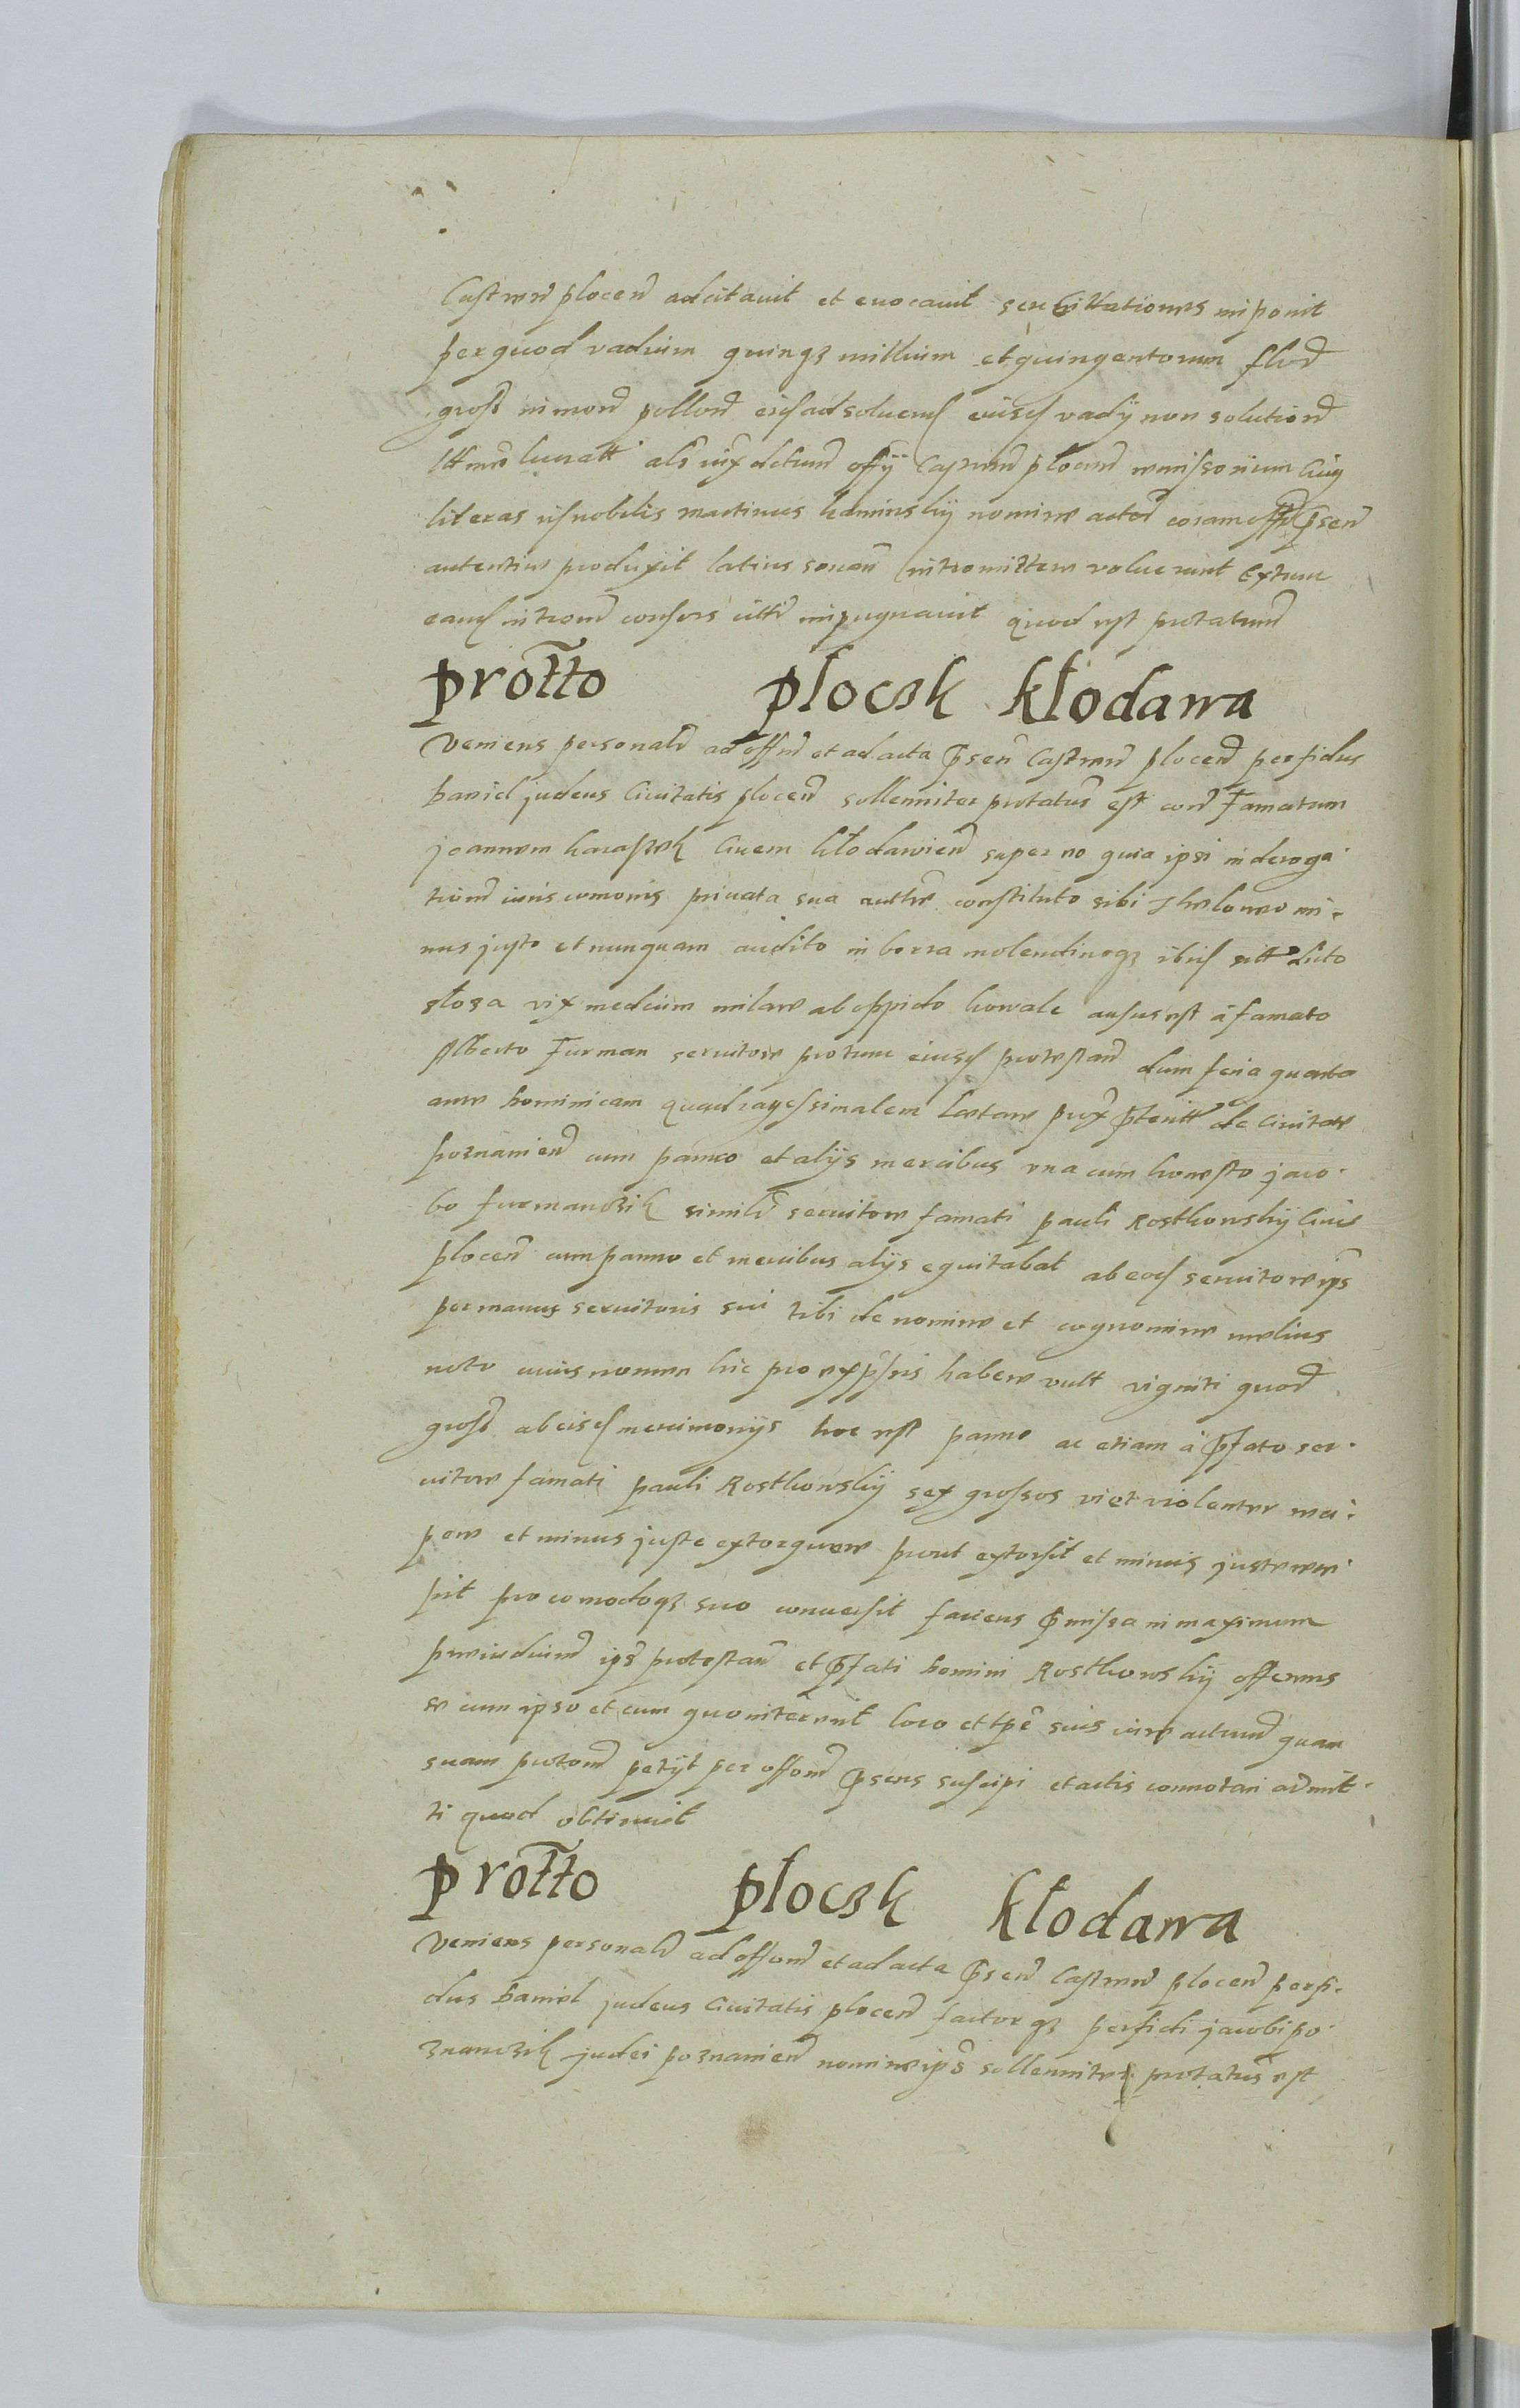 Castren plocen adcitavit et evocavit seu citationes imponit
per quod vadium quinqz millium et quingentorum flor
gross in mon pollon eisd ad solvend eiusd vadij non solution
lucratt als iux decretum offij Castren plocen remissorium Cuius
literas nobilis martinus kaminskij nomine actor coram offo psen
autentice produxit latius sonan intromittere voluerunt Extunc
eand introm consors impugnavit quod est protatum
protto płoczk kłodawa
Veniens personalr ad offm et ad acta psen Castren plocen perfidus
Daniel judeus Civitatis plocen sollenniter protatus est con Famatum
joannem karassek Civem kłodawien super eo quia ipsi in deroga
tionem iuris comonis privata sua authte constituto sibi Theloneo mi
nus justo et nunquam audito in borra molendinoqz ibid dicto
słoza vix medium miliare ab oppido kowale ausus est a famato
Alberto Furman servitore protunc eiusd protestan dum feria quarta
ante Dominicam quadragessimalem Laetare prox pterit de Civitate
poznanien cum panno et alijs mercibus una cum honesto jaco
bo furmanczik similr servitore famati pauli Rosthowskij Civis
plocen cum panno et mercibus alijs equitabat ab eod servitore ips
per manus servitoris sui tibi de nomine et cognomine melius
noto cuius nomen hic pro expssis habere vult viginti quod
gross ab eisd mercimonijs hoc est panno ac etiam a pfato ser
vitore famati pauli Rosthowskij sex grossos vi et violenter reci
pere et minus juste extorquere prout extorsit et minus juste rece
pit pro comodoqz suo conversit faciens pmissa in maximum
preiudicium ips protestan et pfati Domini Rosthowskij offerens
se cum ipso et cum quo intererit loco et tpe suis iure acturum quam
suam protom petijt per offom psens suscipi et actis connotari admit
ti quod obtinuit
protto płoczk kłodawa
Veniens personalr ad offom et ad acta psen Castren plocen perfi
dus Daniel judeus Civitatis plocen factorqz perfidi jacobi po
znanczik judei poznanien nomine ips sollenniter protatus est